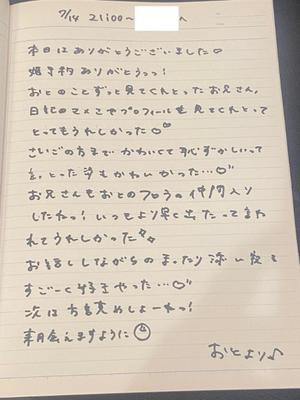 7/14 21:00~　　　へ
本日はありがとうございました♡
姫予約ありがとうっ!
おとのことずっと見てくれとったお兄さん。
日記のマメさやプロフィールも見てくれとって
とってもうれしかった♡
さいごの方まで かわいくて恥ずかしいって
言っとった もかわいかった…♡
お兄さんもおとの の仲間入り
したねっ! いつもより早く出たって言わ
れてうれしかった
お話ししながらの まったり 添い寝も
すごーく好きやった…♡
次は 攻めしよーねっ!
来月会えますように
おとより♪